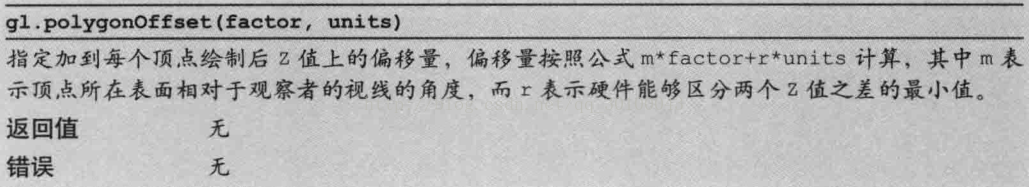 gl.polygonOffset(factor, units)
指定加到每个顶点绘制后 Z 值上的偏移量，偏移量按照公式 m*factor+r*units 计算，其中 m 表
示顶点所在表面相对于观察者的视线的角度，而 r 表示硬件能够区分两个 Z 值之差的最小值。
返回值 无
错误 无